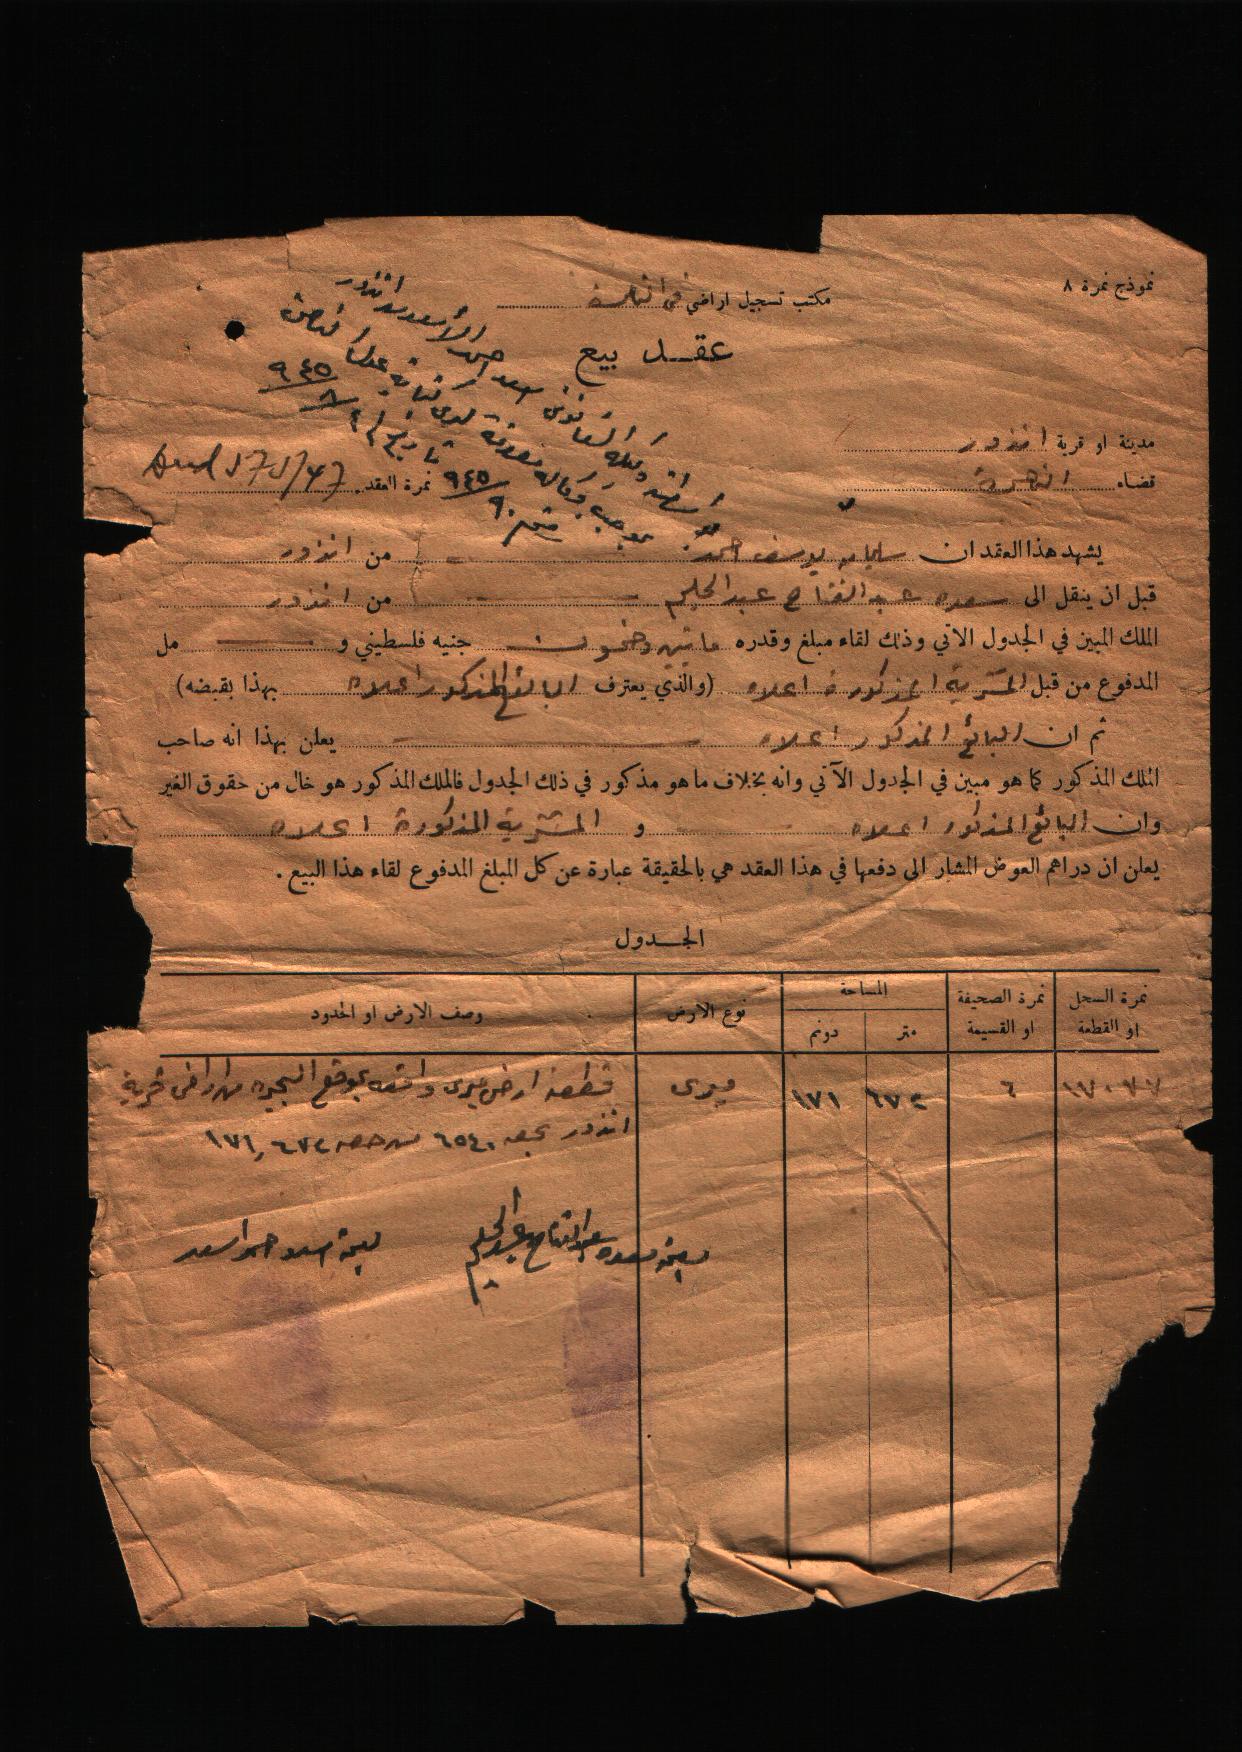 نموذج نمرة ٨
مكتب تسجيل اراضي في الناصرة
عقد بيع
مدينة او قرية اندور
قضاء الناصرة
نمرة العقد 47/
بواسطة وكيله القانوني اسعد احمد الأسعد من اندور
بموجب وكالة مصدقة لدى كاتب عدل الناصرة
٩٤٥
يشهد هذا العقد ان سليمان يوسف احمد من اندور
قبل ان ينقل الى سعده عبد الفتاح عبد الحليم من اندور
الملك المبين في الجدول الآتي وذلك لقاء مبلغ وقدره مايتين وخمسون جنيه فلسطيني و مل
المدفوع من قبل المشترية المذكورة اعلاه (والذي يعترف البائع المذكور اعلاه بهذا بقبضه)
ثم ان البائع المذكور اعلاه يعلن بهذا انه صاحب
الملك المذكور كما هو مبين في الجدول الآتي وانه بخلاف ما هو مذكور في ذلك الجدول فالملك المذكور هو خال من حقوق الغير
وان البائع المذكور اعلاه و المشترية المذكورة اعلاه
يعلن ان دراهم العوض المشار الى دفعها في هذا العقد هي بالحقيقة عبارة عن كل المبلغ المدفوع لقاء هذا البيع .
الجدول
نمرة السجل او القطعة
نمرة الصحيفة او القسيمة
المساحة
متر
دونم
نوع الارض
وصف الارض او الحدود
١٧٠٧٧
٦
٦٧٢
١٧١
ميرى
قطعة ارض ميرى واقعة بموقع من اراضي قرية
اندور بحصة ٦٥٤٠ من حصة ١٧١,٦٧٢
بصمة سعده عبد الفتاح عبد الحليم
بصمة اسعد احمد اسعد